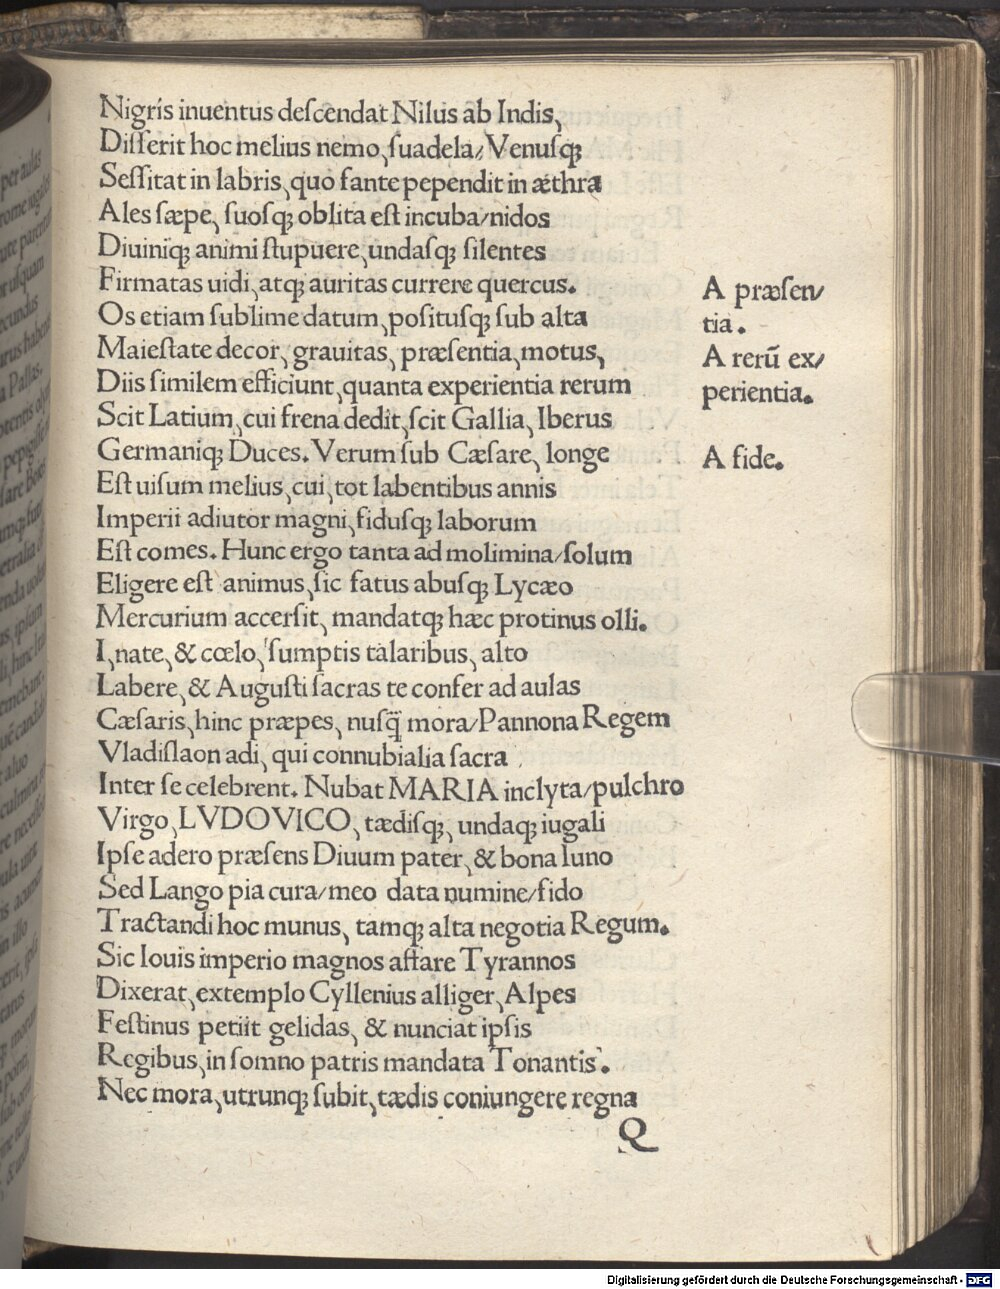 Nigris inuentus deſcendat Nilus ab Indis,
Diſſerit hoc melius nemo, ſuadela, Venuſq;
Seſſitat in labris, quo fante pependit in æthra
Ales ſæpe, ſuoſq; oblita eſt incuba/nidos
Diuiniq; animi ſtupuere, undaſq; ſilentes
Firmatas uidi, atq; auritas currere quercus.
Os etiam ſublime datum, poſituſq; ſub alta
Maieſtate decor, grauitas, præſentia, motus,
Diis ſimilem efficiunt, quanta experientia rerum
Scit Latium, cui frena dedit, ſcit Gallia, Iberus
Germaniq; Duces. Verum ſub Cæſare, longe
Eſt uiſum melius, cui, tot labentibus annis
Imperii adiutor magni, fiduſq; laborum
Eſt comes. Hunc ergo tanta ad molimina/ſolum
Eligere eſt animus, ſic fatus abuſq; Lycæo
Mercurium accerſit, mandatq; hæc protinus olli.
I, nate, & cœlo, ſumptis talaribus, alto
Labere, & Auguſti ſacras te confer ad aulas
Cæſaris, hinc præpes, nuſq̃ mora/Pannona Regem
Vladiſlaon adi, qui connubialia ſacra
Inter ſe celebrent. Nubat MARIA inclyta/pulchro
Virgo, LVDOVICO, tædiſq;, undaq; iugali
Ipſe adero præſens Diuum pater, & bona Iuno
Sed Lango pia cura/meo data numine/fido
Tractandi hoc munus, tamq; alta negotia Regum.
Sic Iouis imperio magnos affare Tyrannos
Dixerat, extemplo Cyllenius alliger, Alpes
Feſtinus petiit gelidas, & nunciat ipſis
Regibus, in ſomno patris mandata Tonantis.
Nec mora, utrunq; ſubit, tædis coniungere regna
Q
A præſen/
tia.
A rerũ ex/
perientia.
A fide.
Digitalisierung gefördert durch die Deutsche Forschungsgemeinschaft - DFG